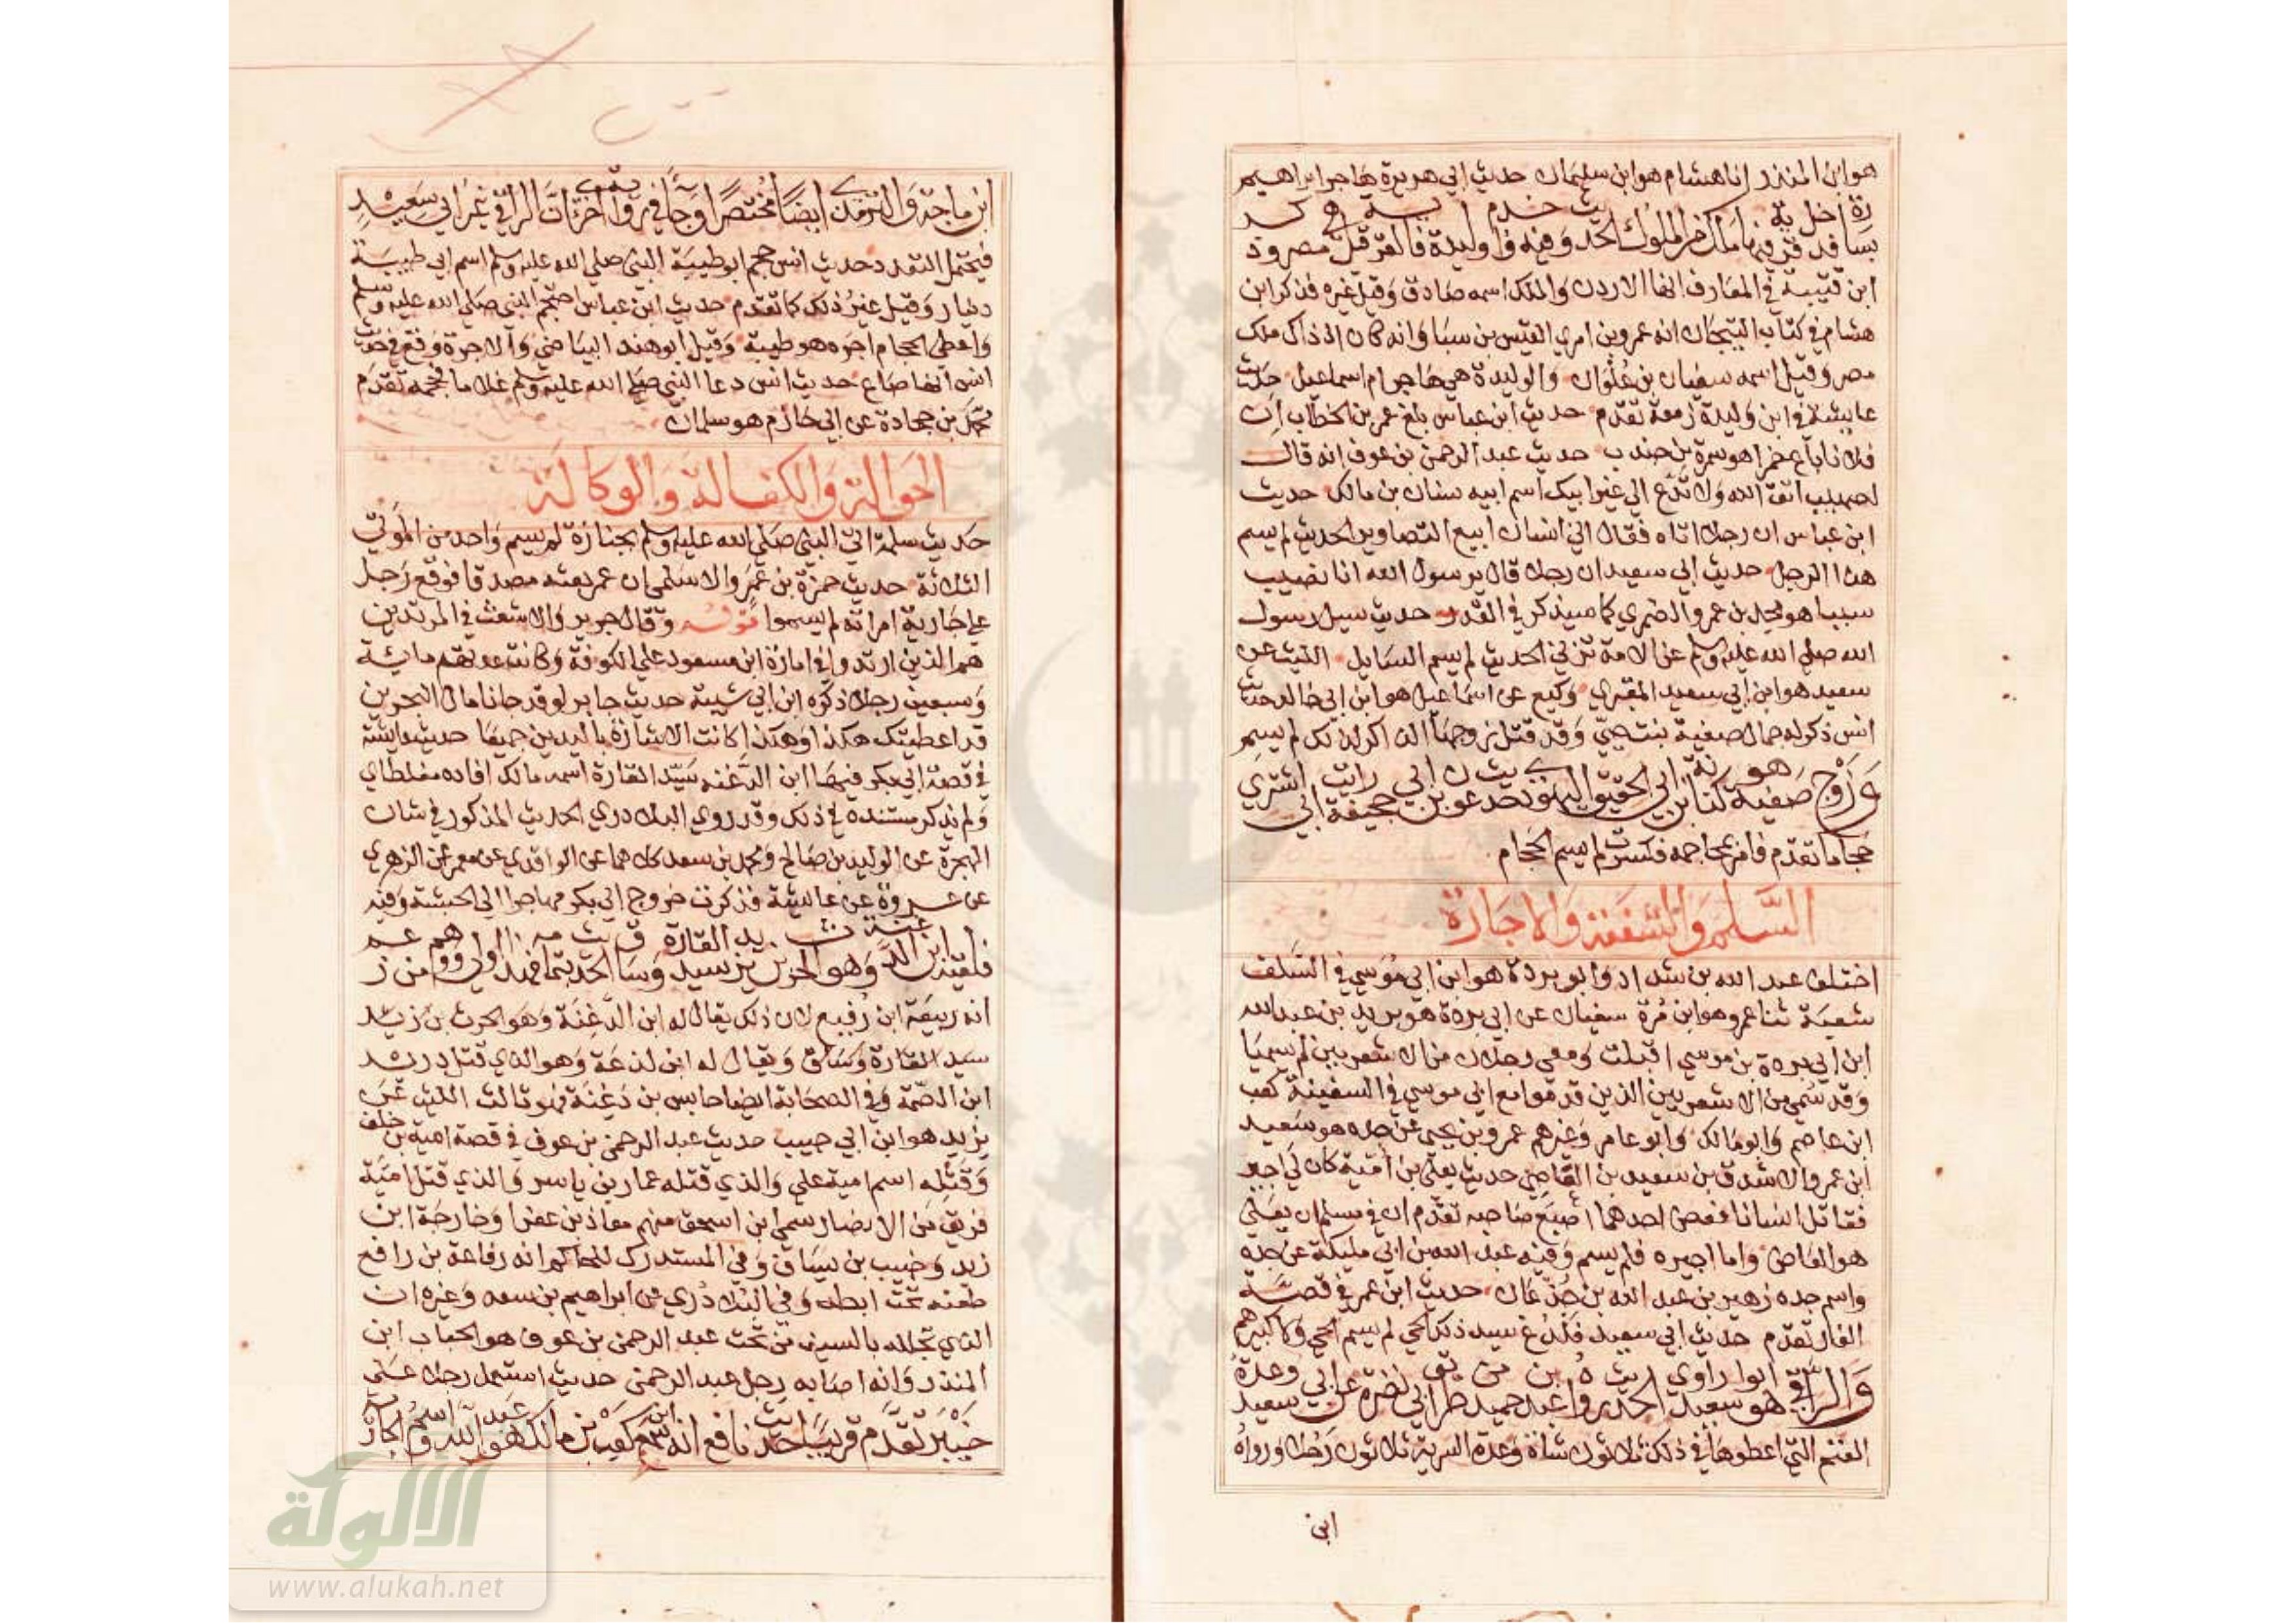 هو ابن المنذر انا هشام هو ابن سليمان حديث ابي هريرة هاجر ابراهيم
بسارة فدخل قرية فيها ملك من الملوك الحديث وفيه واخدم وليدة فالقرية قيل هي مصر وذكر
ابن قتيبة في المعارف انها الاردن والملك اسمه صادق وقيل غيره فذكر ابن
هشام في كتاب التيجان انه عمرو بن امري القيس بن سبا وانه كان اذ ذاك ملك
مصر وقيل اسمه سفيان بن علوان والوليدة هي هاجر ام اسماعيل حديث
عايشة في ابن وليدة زمعة تقدم حديث ابن عباس بلغ عمر بن الخطاب ان
فلانا باع خمرا هو سمرة بن جندب حديث عبد الرحمن بن عوف انه قال
لصهيب اتق الله ولا تدع الي غير ابيك اسم ابيه سنان بن مالك حديث
ابن عباس ان رجلا اتاه فقال اني انسان ابيع التصاوير الحديث لم يسم
هذا الرجل حديث ابي سعيد ان رجلا قال يرسول الله انا نصيب
سبيا هو مجدي بن عمرو الضمري كما سيذكر في القدر حديث سيل رسول
الله صلي الله عليه وسلم عن الامة تزني الحديث لم يسم السايل الليث عن
سعيد هو ابن ابي سعيد المقبري وكيع عن اسماعيل هو ابن ابي خالد حديث
انس ذكر له جمال صفية بنت حيي وقد قتل زوجها الذاكر لذلك لم يسم
وزوج صفية هو كنانة بن ابي الحقيق اليهودي حديث عون بن ابي جحيفة رايت ابي اشتري
حجاما تقدم فامر بمحاجمه فكسرت لم يسم الحجام
السلم والشفعة والاجارة
اختلف عبد الله بن شداد وابو بردة هو ابن ابي موسي في السلف
شعبة ثنا عمرو هو ابن مرة سفيان عن ابي بردة هو بريد بن عبد الله
ابن ابي بردة بن موسي اقبلت ومعي رجلان من الاشعريين لم سميا
وقد سمي من الاشعريين الذين قدموا مع ابي موسي في السفينة كعب
ابن عاصم وابو مالك وابو عامر وغيرهم عمرو بن يحيى عن جده هو سعيد
ابن عمرو الاشدق بن سعيد بن القاضي حديث يعلى بن امية كان لي اجير
فقاتل انسانا فعض احدهما اصبع صاحبه تقدم ان في مسلم ان يعلي
هو العاض واما اجيره فلم يسم وفيه عبد الله بن ابي مليكة عن جده
واسم جده زهير بن عبد الله بن جدعان حديث ابن عمر في قصة
الغار تقدم حديث ابي سعيد فلدغ سيد ذلك الحي لم يسم الحي ولا كبيرهم
والراقي هو ابو سعيد راوي الحديث رواه عبد بن حميد من طريق ابي نضرة عن ابي سعيد وعدة
الغنم التي اعطوها في ذلك ثلاثون شاة وعدة السرية ثلاثون رجلا ورواه
ابن
ابن ماجة والترمذي ايضا مختصرا وجاء في رواية اخري ان الراقي غير ابي سعيد
فيحتمل التعدد حديث انس حجم ابو طيبة النبي صلي الله عليه وسلم اسم ابي طيبة
دينار وقيل غير ذلك كما تقدم حديث ابن عباس احتجم النبي صلي الله عليه وسلم
واعطي الحجام اجره هو طيبة وقيل ابو هند البياضي والاجرة وقع في حديث
انس انها صاع حديث انس دعا النبي صلي الله عليه وسلم غلاما فحجمه تقدم
محمد بن جحادة عن ابي حازم هو سلمان
الحوالة والكفالة والوكالة
حديث سلمة اتي النبي صلي الله عليه وسلم بجنازة لم يسم واحد من الموتي
الثلاثة حديث حمزة بن عمرو الاسلمي ان عمر بعثه مصدقا فوقع رجل
علي جارية امراته لم يسموا قوله وقال جرير والاشعث في المرتدين
هم الذين ارتدوا في امارة ابن مسعود علي الكوفة وكانت عدتهم ماية
وسبعين رجلا ذكره ابن ابي شيبة حديث جابر لو قد جانا مال البحرين
قد اعطيتك هكذا وهكذا كانت الاشارة باليدين جميعا حديث عايشة
في قصة ابي بكر فيها ابن الدغنه سيد القارة اسمه مالك افاده مغلطاي
ولم يذكر مستنده في ذلك وقد روي البلاذري الحديث المذكور في شان
الهجرة عن الوليد بن صالح ومحمد بن سعد كلاهما عن الواقدي عن معمر عن الزهري
عن عروة عن عايشة فذكرت خروج ابي بكر مهاجرا الي الحبشة وفيه
فلقيه ابن الدغنة وهو الحرث بن يزيد سيد القارة وساق الحديث بتمامه فهذا اولي ووهم من زعم
انه ربيعة ابن رفيع لان ذلك يقال له ابن الدغنة وهو الحرث بن زيد
سيد القارة وساق ويقال له ابن لدغة وهو الذي قتل دريد
ابن الصمة وفي الصحابة ايضا حابس بن دغنة فهو ثالث الليث عن
يزيد هو ابن ابي حبيب حديث عبد الرحمن بن عوف في قصة امية بن خلف
وقتله اسم امية علي والذي قتله عمار بن ياسر والذي قتل امية
فريق من الانصار سمي ابن اسحق منهم معاذ بن عفرا وخارجة ابن
زيد وخبيب بن يساق وفي المستدرك للحاكم انه رفاعة بن رافع
طعنه تحت ابطه وفي البلاذري من ابراهيم بن سعد وغيره ان
الذي تجلله بالسيف من تحت عبد الرحمن بن عوف هو الحباب ابن
المنذر وانه اصابه رجل عبد الرحمن حديث استعمل رجلا علي
خيبر تقدم قريبا حديث نافع انه سمع ابن كعب بن مالك هو عبد الله واسم الجارية
الألوكة
www.alukah.net